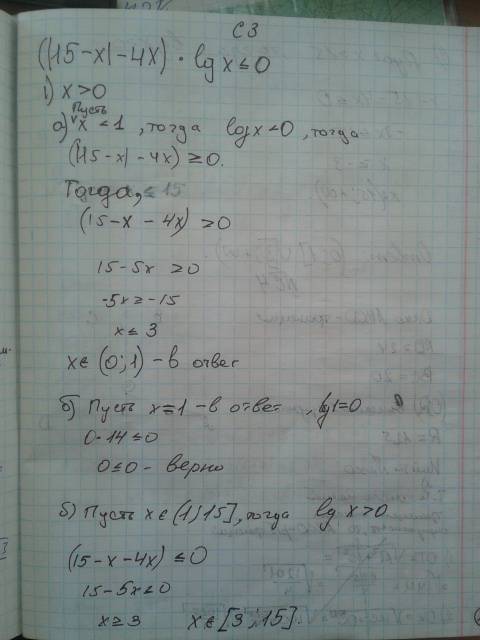 С3
(|15-x|-4x) · lg x ≤ 0
1) x > 0
Пусть
а) x < 1, тогда lg x < 0, тогда
(|15-x| - 4x) ≥ 0.
Тогда,
(15-x - 4x) ≥ 0
15-5x ≥ 0
-5x ≥ -15
x ≤ 3
x ∈ (0; 1) - в ответ
б) Пусть x = 1 - в ответ, lg1 = 0
0·14 ≤ 0
0 ≤ 0 - верно
б) Пусть x ∈ (1; 15], тогда lg x > 0
(15-x-4x) ≤ 0
15-5x ≤ 0
x ≥ 3 x ∈ [3; 15].